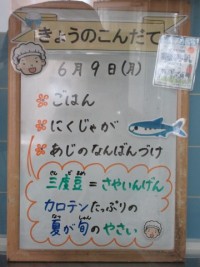 きょうのこんだて
6月9日(月)
ごはん
にくじゃが
あじのなんばんづけ
三度豆=さやいんげん
カロテンたっぷりの
夏が旬のやさい